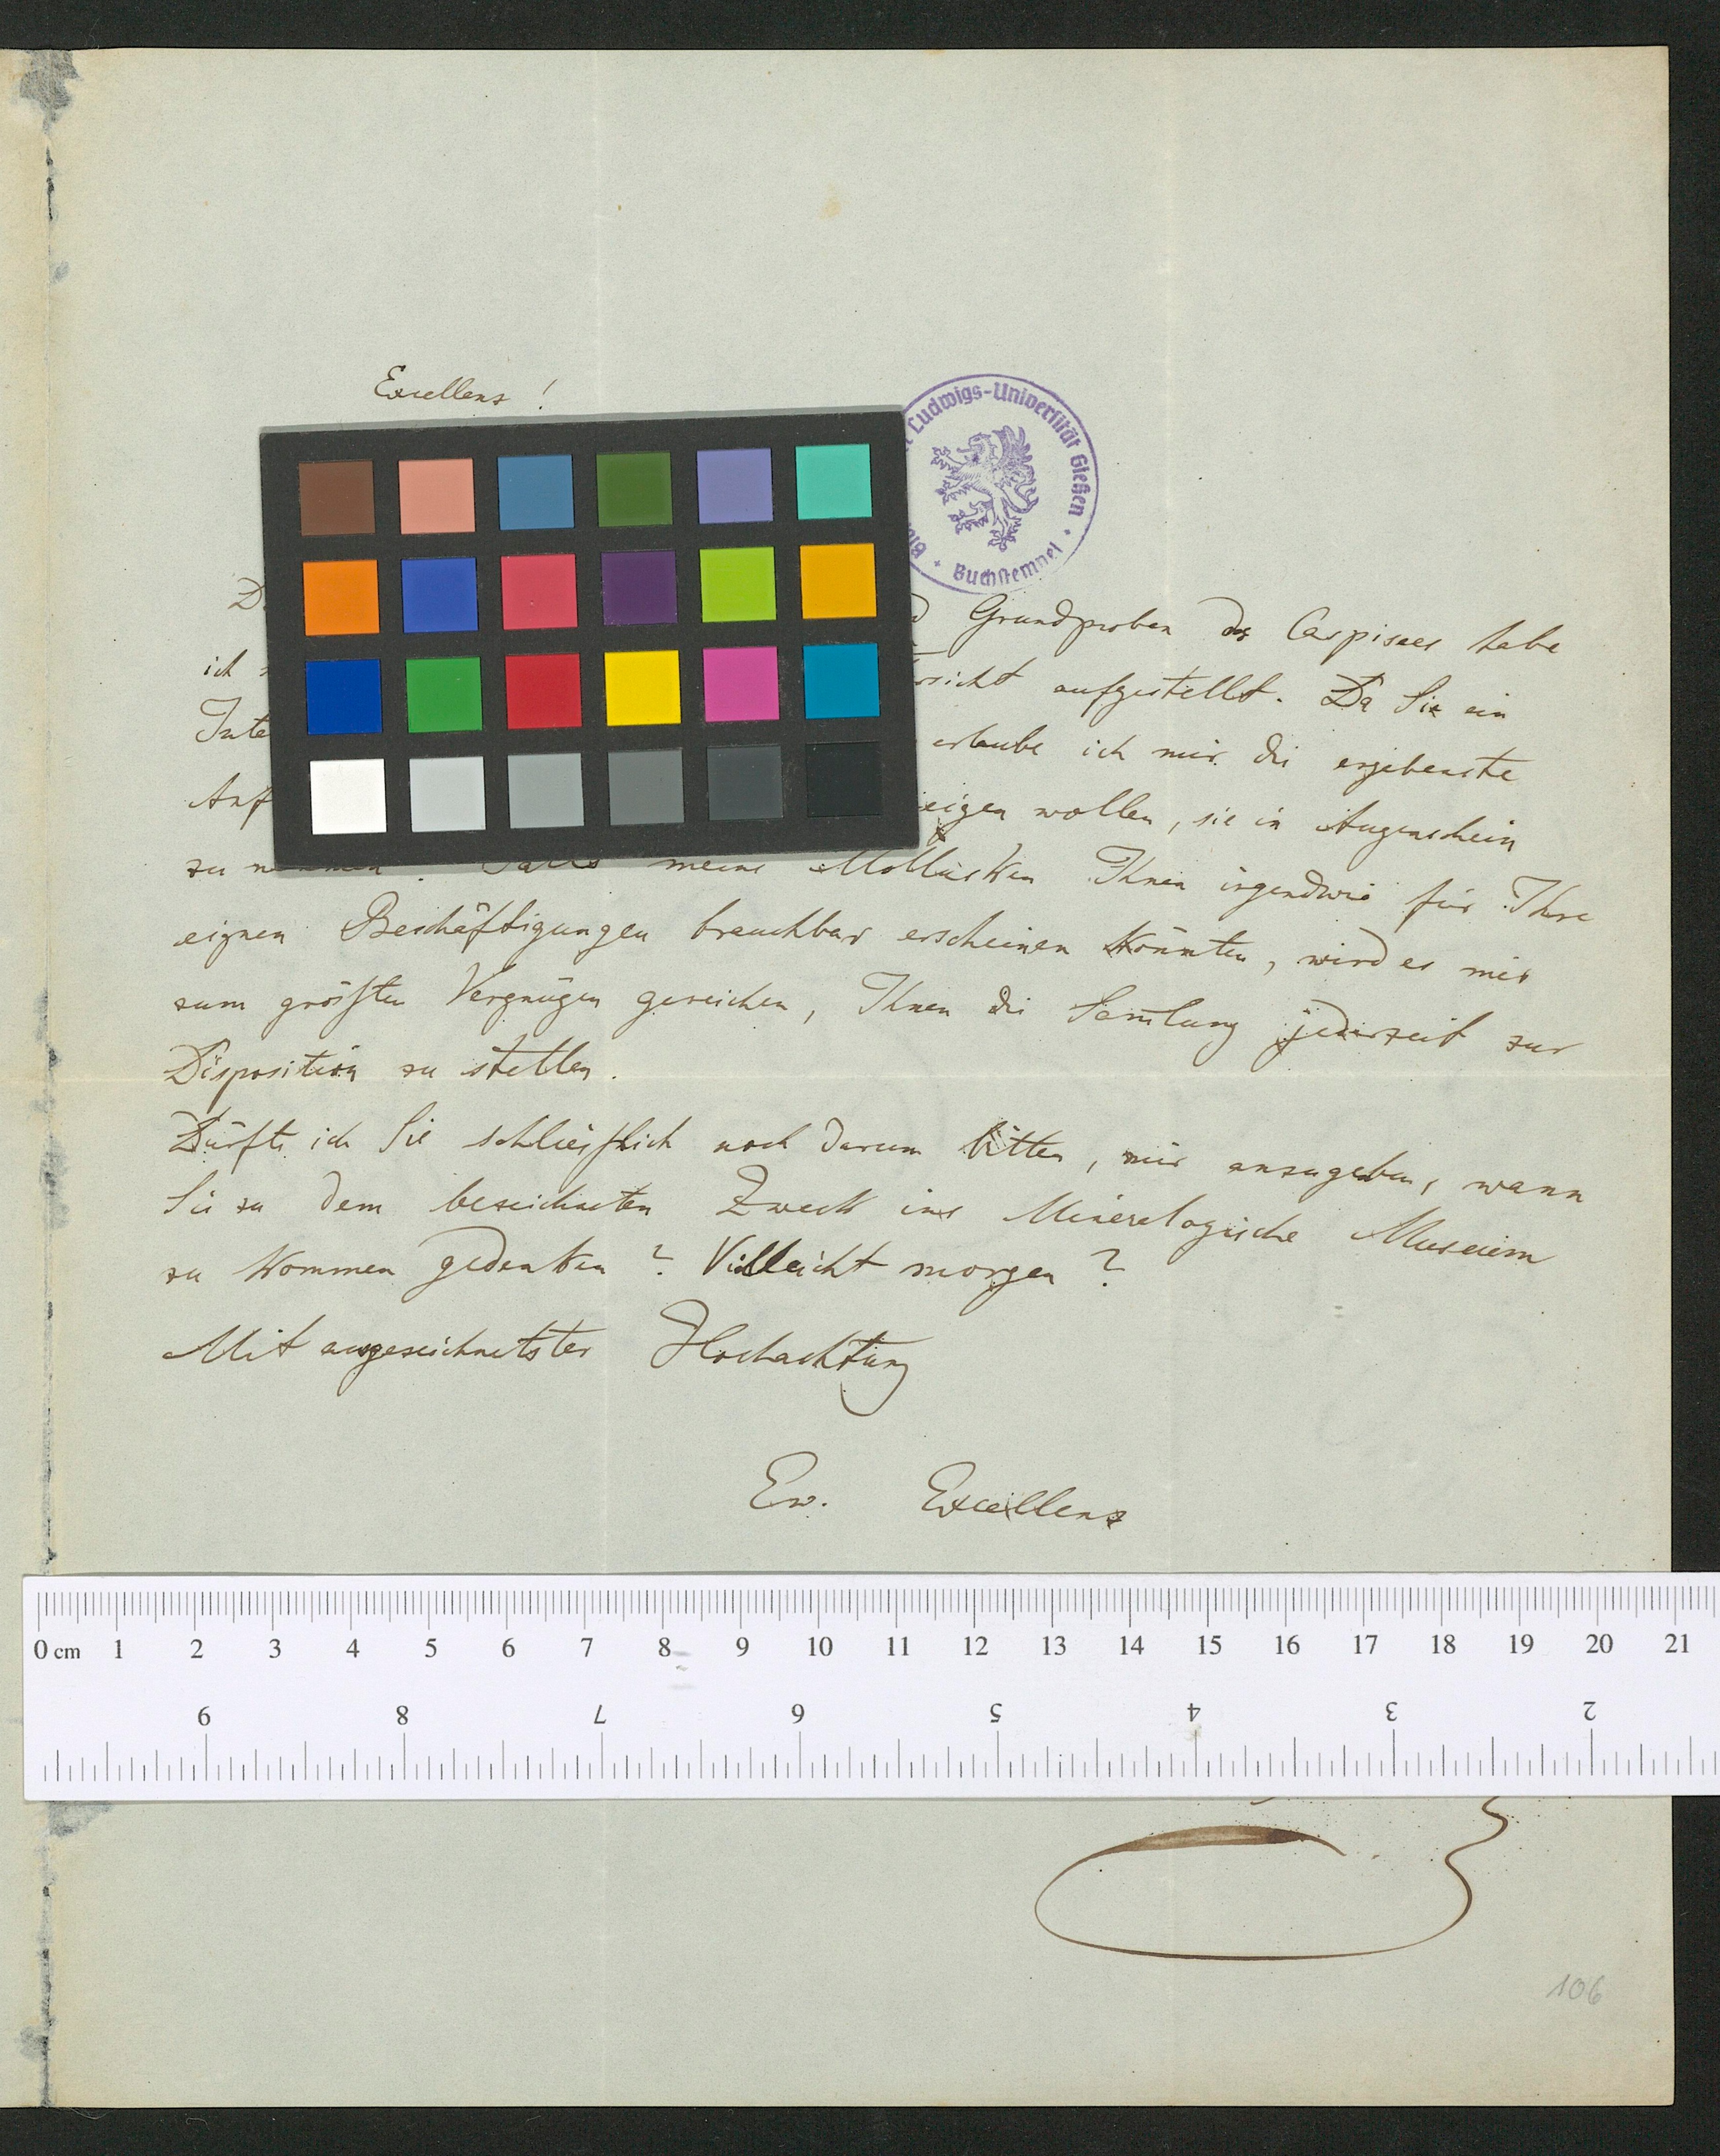 Excellenz !
Ludwigs-Universität Gießen
Buchstempel
Grundproben des Caspisees habe
ich
aufgestellt. Da Sie ein
erlaube ich mir die ergebenste
wollen, sie in Augenschein
zu meine Mollusken Ihnen irgendwie für Ihre
eignen Beschäftigungen brauchbar erscheinen könnten, wird es mir
zum größten Vergnügen gereichen, Ihnen die Samlung jederzeit zur
Disposition zu stellen.
Dürfte ich Sie schließlich noch darum bitten, mir anzugeben, wann
Sie zu dem bezeichneten Zweck ins Mineralogische Museum
zu kommen gedenken ? Vielleicht morgen ?
Mit ausgezeichnetster Hochachtung
Ew. Excellenz
0 cm 1 2 3 4 5 6 7 8 9 10 11 12 13 14 15 16 17 18 19 20 21
9 8 7 6 5 4 3 2
106